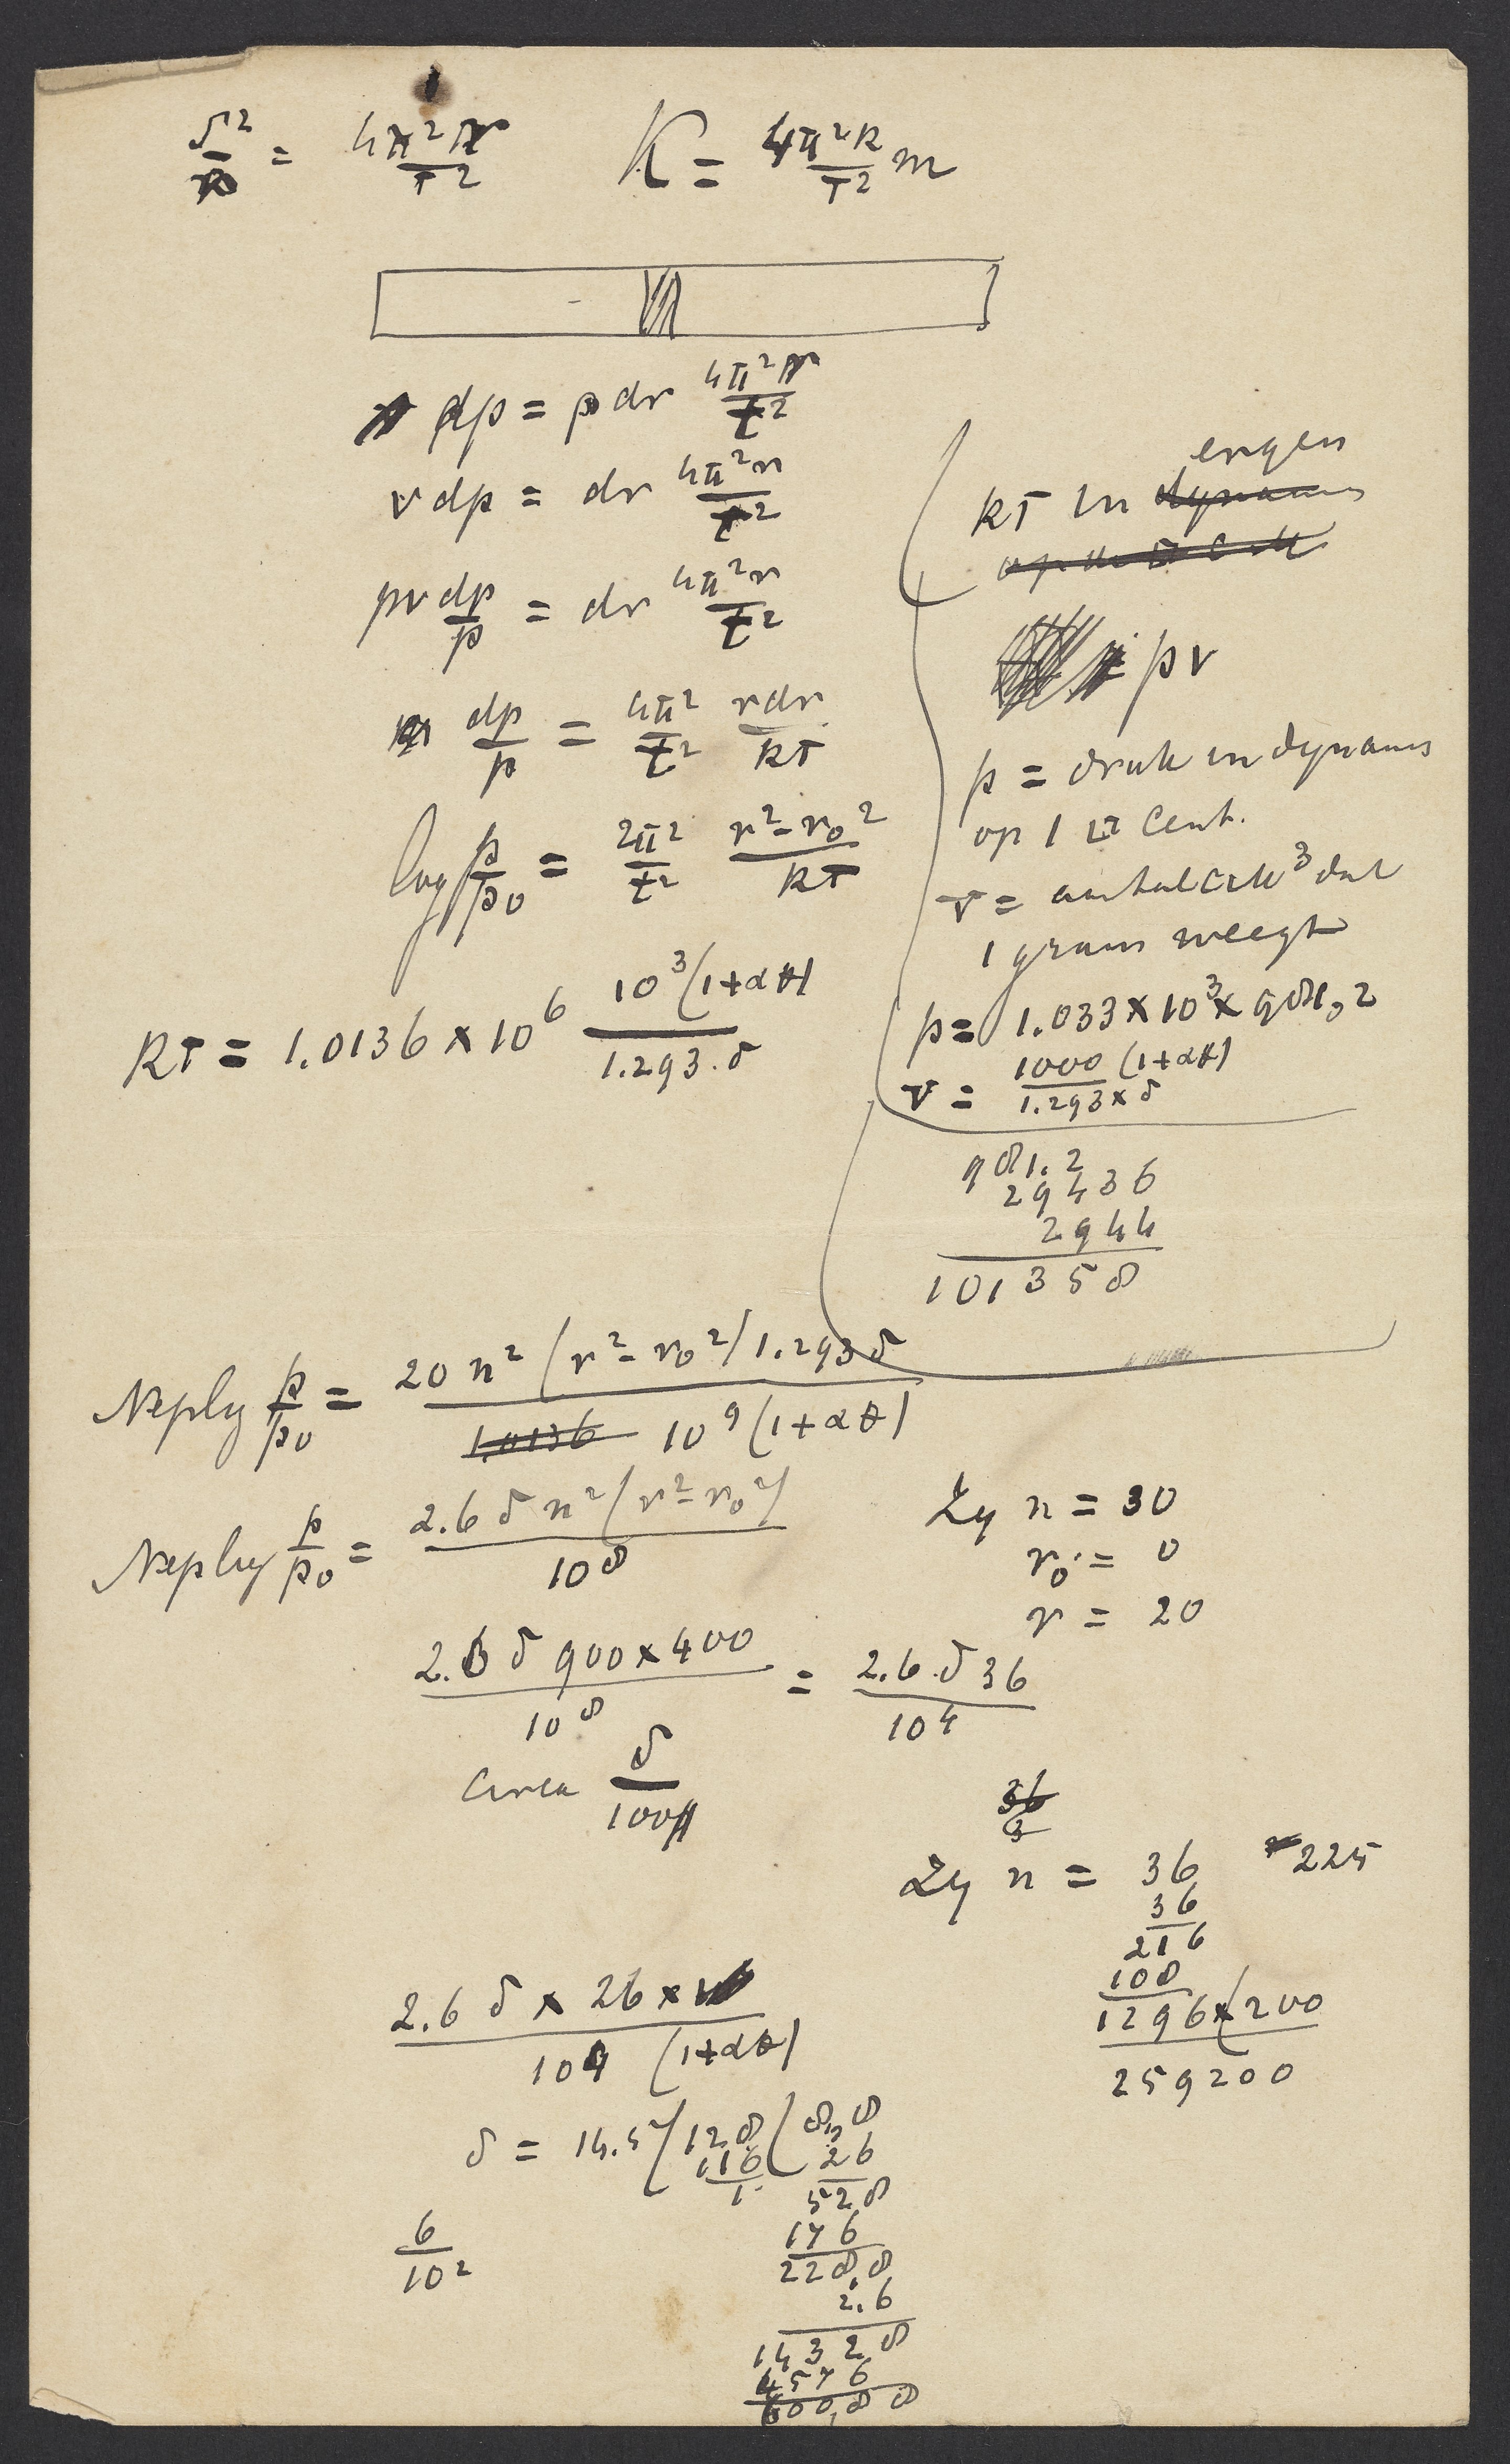 v²/R = 4π²R/T²    K = 4π²R/T² m
dp = ρ dr 4π²r/t²
v dp = dr 4π²r/t²
pv dp/p = dr 4π²r/t²
dp/p = 4π²/t² rdr/RT
log p/p₀ = 2π²/t² r²-r₀²/RT
RT = 1.0136 × 10⁶ 10³(1+αt)/1.293.δ
ergen
RT in dynamis
pv
p = druk in dynamis
op 1 □ Cent.
v = aantal cM³ dat
1 gram weegt
p = 1.033 × 10³ × 981,2
v = 1000 (1+αt)/1.293×δ
981.2
29436
2944
101358
Neplog p/p₀ = 20 n² (r²-r₀²) 1.293 δ/1.0136 10⁹ (1+αt)
Neplog p/p₀ = 2.6 δ n² (r²-r₀²)/10⁸
Zy n = 30
r₀ = 0
r = 20
2.6 δ 900×400/10⁸ = 2.6.δ 36/10⁴
circa δ/100
36
3
Zy n = 36    225
36
216
108
1296×(200
259200
2.6 δ × 26 ×/10⁴ (1+αt)
δ = 14.5/128(8,8
116    26
1    528
6/10²    176
228,8
2.6
14328
4576
600,88